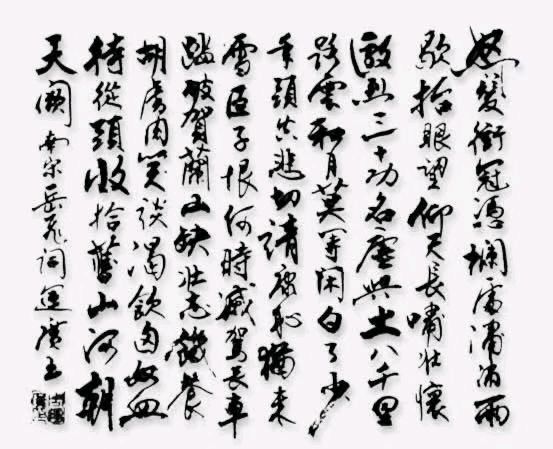 怒髮衝冠憑欄處瀟瀟雨
歇抬眼望仰天長嘯壯懷
激烈三十功名塵與土八千里
路雲和月莫等閑白了少
年頭空悲切靖康恥猶未
雪臣子恨何時滅駕長車
踏破賀蘭山缺壯志饑餐
胡虜肉笑談渴飲匈奴血
待從頭收拾舊山河朝
天闕南宋岳飛詞運廣